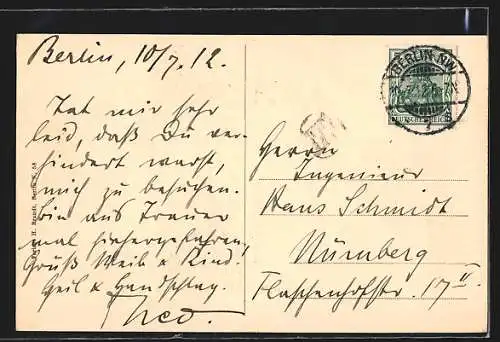 Berlin, 10/7.12.
Tat mir sehr
leid, daß Du ver-
hindert warst,
mich zu besuchen.
Bin aus Trauer
mal hintergefahren,
Gruß Weib & Kind.
Heil & Handschlag.
BERLIN NW
DEUTSCHES REICH
Herrn
Ingenieur
Hans Schmidt
Nürnberg
Flaschenhofstr. 17 II.